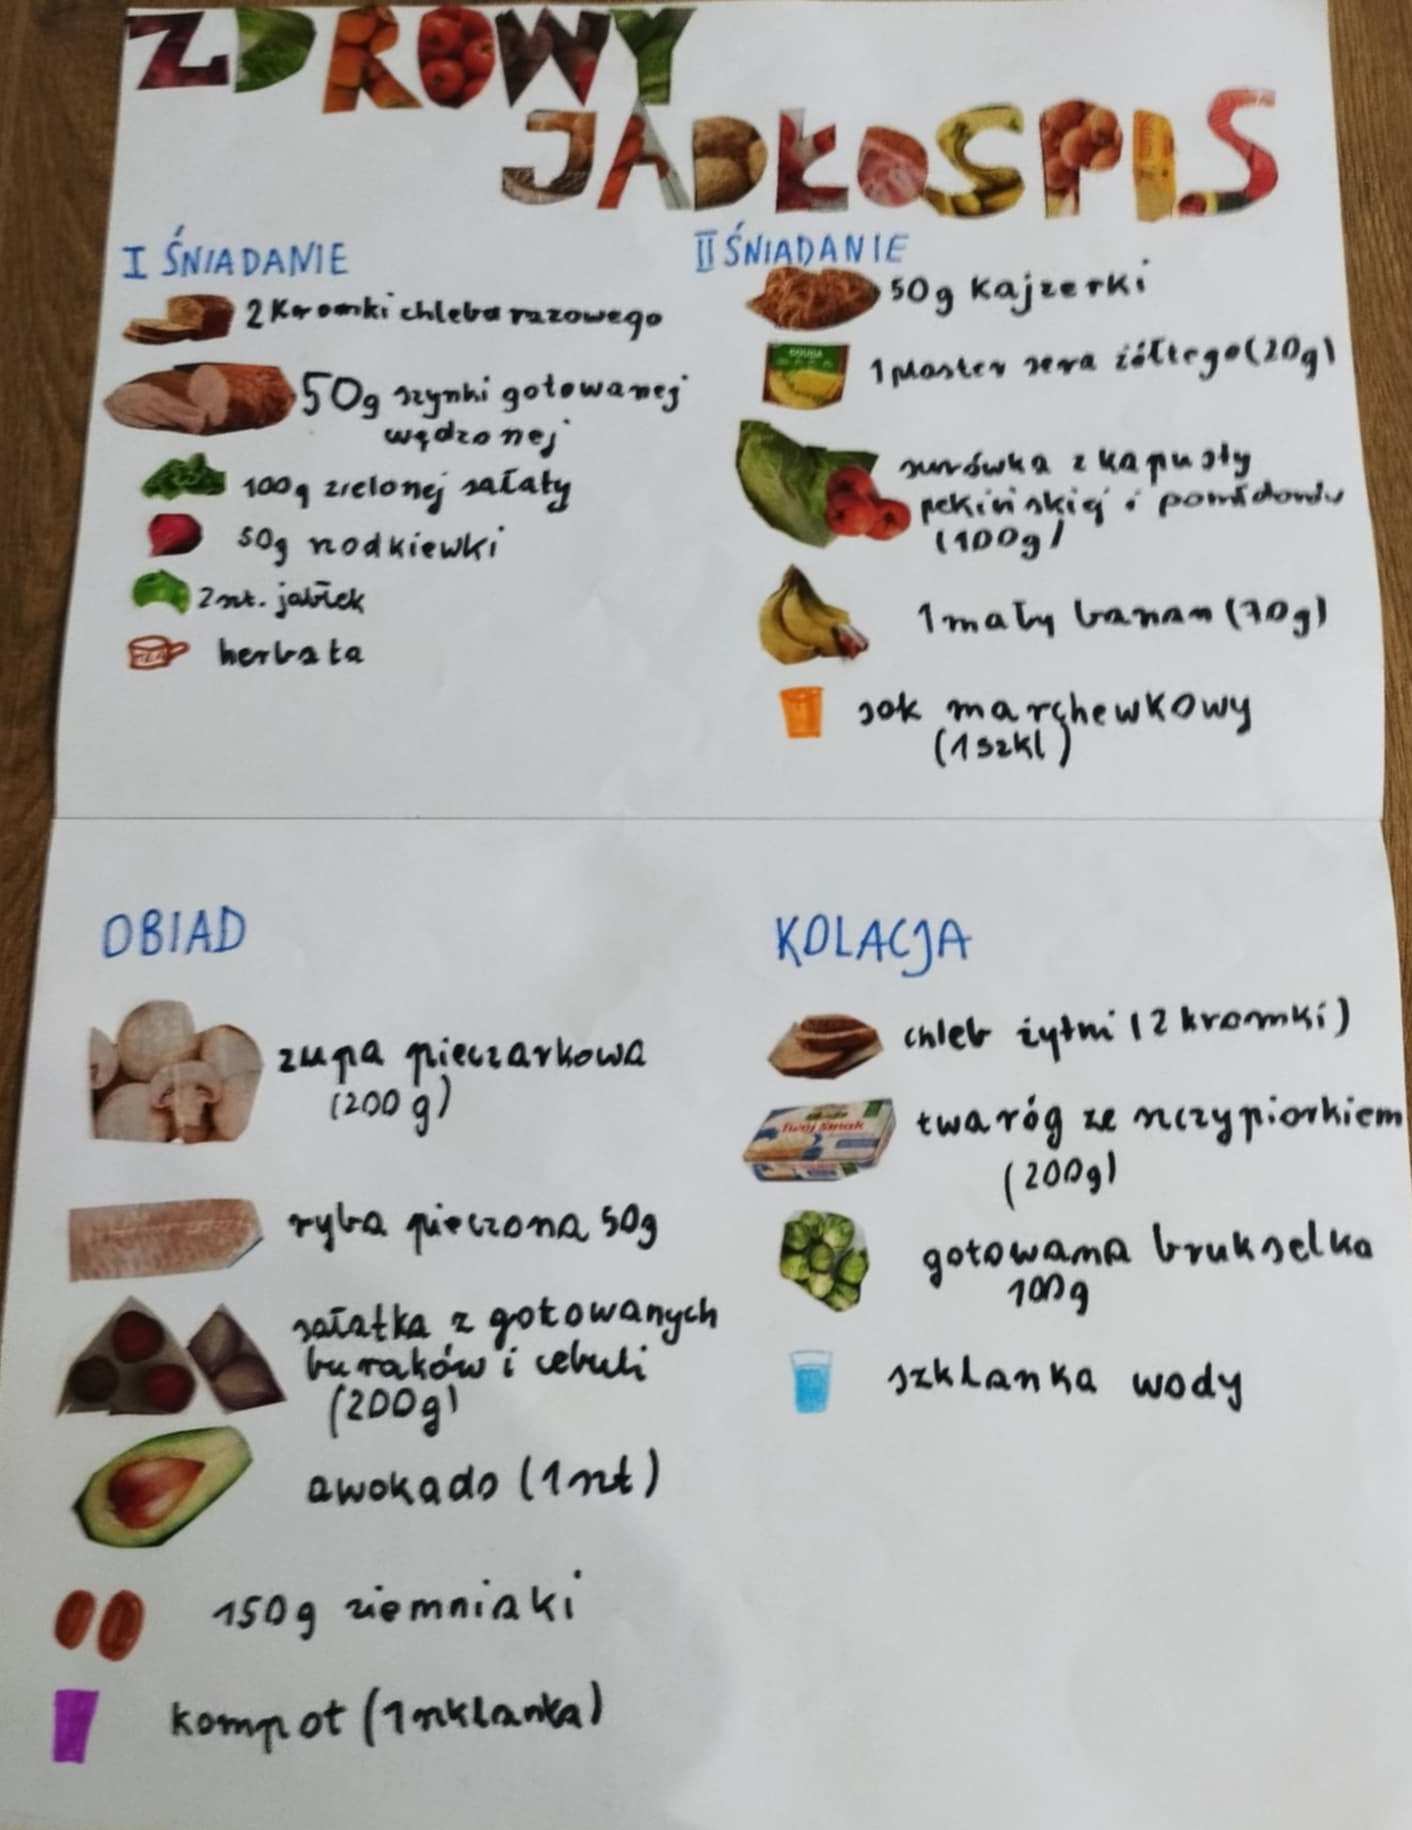 ZDROWY
JADŁOSPIS
I ŚNIADANIE
2 kromki chleba razowego
50g szynki gotowanej
wędzonej
100g zielonej sałaty
50g rzodkiewki
2 szt. jabłek
herbata
II ŚNIADANIE
50g kajzerki
GOUDA
1 plaster sera żółtego (20g)
surówka z kapusty
pekińskiej i pomidorów
(100g)
1 mały banan (70g)
sok marchewkowy
(1 szkl)
OBIAD
zupa pieczarkowa
(200 g)
ryba pieczona 50g
sałatka z gotowanych
buraków i cebuli
(200g)
awokado (1 szt)
150g ziemniaki
kompot (1 szklanka)
KOLACJA
chleb żytni (2 kromki)
Twój Smak
twaróg ze szczypiorkiem
(200g)
gotowana brukselka
100g
szklanka wody